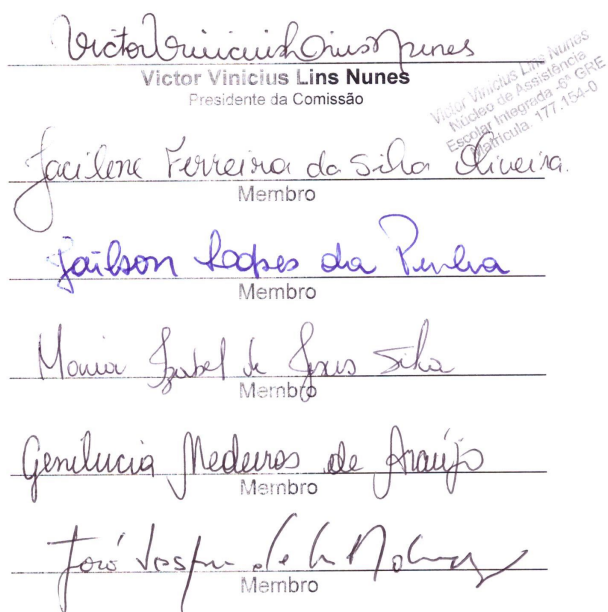 Victor Vinicius Lins Nunes
Victor Vinicius Lins Nunes
Presidente da Comissão
Victor Vinicius Lins Nunes
Núcleo de Assistência
Escolar Integrada -6ª GRE
Matrícula. 177.154-0
Jacilene Ferreira da Silva Oliveira.
Membro
Jailson Lopes da Penha
Membro
Maria Izabel de Jesus Silva
Membro
Genilucia Medeiros de Araújo
Membro
José
Membro